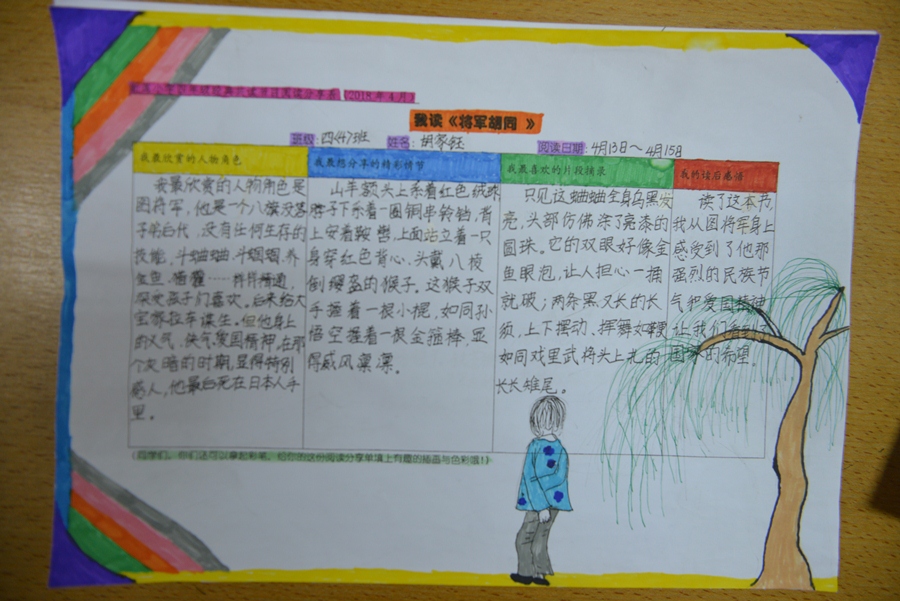 2018年4月
我读《将军胡同》
班级:四(4)班 姓名:胡家钰 阅读日期:4月13日~4月15日
我最欣赏的人物角色
我最欣赏的人物角色是
图将军,他是一个八旗没落
子弟后代,没有任何生存的
技能,斗蛐蛐、斗蝈蝈、养
金鱼、
深受孩子们喜欢。后来给大
宝家拉车谋生。但他身上
的义气、侠气、爱国精神,在那
个灰暗的时期,显得特别
感人,他最后死在日本人手
里。
我最想分享的精彩情节
山羊额头上系着红色绒球
脖子下系着一圈铜串铃铛,背
上安着鞍辔,上面站立着一只
身穿红色背心、头戴八棱
倒缨盔的猴子。这猴子双
手握着一根小棍,如同孙
悟空握着一根金箍棒,显
得威风凛凛。
我最喜欢的片段摘录
只见这蛐蛐全身乌黑发
亮,头部仿佛涂了亮漆的
圆珠。它的双眼好像金
鱼眼泡,让人担心一捅
就破;两条黑又长的长
须,上下摆动,挥舞如鞭
如同戏里武将头上扎的
长长雉尾。
我的读后感悟
读了这本书,
我从图将军身上
感受到了他那
强烈的民族节
气和爱国精神
让我们看到了
国家的希望。
(同学们,你们还可以拿起彩笔,给你的这份阅读分享单填上有趣的插画与色彩哦!)